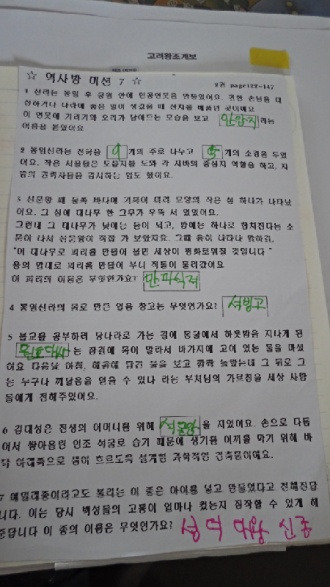 고려왕조계보
☆ 역사방 미션 7 ☆
2권 page122-142
1 신라는 통일 후 궁궐 안에 인공연못을 만들었어요 귀한 손님을 대
접하거나 나라에 좋은 일이 생겼을 때 잔치를 베풀던 곳이에요
이 연못에 기러기와 오리가 날아드는 모습을 보고 안압지 라는
이름을 붙였어요
2 통일신라는 전국을 9 개의 주로 나누고 5 개의 소경을 두었
어요. 작은 서울 도읍지 각 지방의 중심지 역할을 하고, 지
방의 세력을 감시하는 일도 했어요.
3 신문왕 때 동쪽 바다에 거북이 머리 모양의 작은 섬 하나가 나타났
어요. 그 섬에 대나무 한 그루가 우뚝 서 있었어요.
그런데 그 대나무가 낮에는 둘이 되고, 밤에는 하나로 합쳐진다는 소
문이 나서 신문왕이 직접 가 보았지요. 그때 용이 나타나 말하길,
"이 대나무로 피리를 만들어 불면 세상이 평화로워질 것입니다."
용의 말대로 피리를 만들어 부니 적들이 물러갔어요
이 피리의 이름은 무엇인가요? 만파식적
4 통일신라의 돌로 만든 얼음 창고는 무엇인가요? 석빙고
5 불교를 공부하러 당나라로 가는 길에 동굴에서 하룻밤을 지나게 된
원효대사 는 잠결에 목이 말라서 바가지에 고여 있는 물을 마셨
어요 다음날 아침, 해골에 담긴 물을 보고 깜짝 놀랐는데 그 뒤로 그
는 누구나 깨달음을 얻을 수 있다 라는 부처님의 가르침을 세상 사람
들에게 전해주었어요.
6 김대성은 전생의 어머니를 위해 석굴암 을 지었어요. 손으로 다듬
어서 쌓아올린 인조 석굴로 습기 때문에 생기는 이끼를 막기 위해 바
닥 아래쪽으로 샘이 흐르도록 설계한 과학적인 건축물이에요.
7 에밀레종이라고도 불리는 이 종은 아이를 넣고 만들었다고 전해진답
니다. 이는 당시 백성들의 고통이 얼마나 컸는지 짐작할 수 있게 하
는답니다 이 종의 이름은 무엇인가요? 성덕대왕 신종